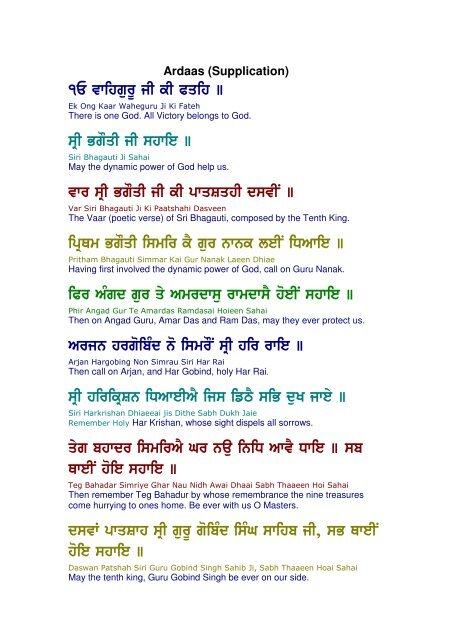 Ardaas (Supplication)
੧ਓ ਵਾਹਿਗੁਰੂ ਜੀ ਕੀ ਫਤਹਿ ॥
Ek Ong Kaar Waheguru Ji Ki Fateh
There is one God. All Victory belongs to God.
ਸ੍ਰੀ ਭਗੌਤੀ ਜੀ ਸਹਾਇ ॥
Siri Bhagauti Ji Sahai
May the dynamic power of God help us.
ਵਾਰ ਸ੍ਰੀ ਭਗੌਤੀ ਜੀ ਕੀ ਪਾਤਸ਼ਤਹੀ ਦਸਵੀਂ ॥
Var Siri Bhagauti Ji Ki Paatshahi Dasveen
The Vaar (poetic verse) of Sri Bhagauti, composed by the Tenth King.
ਪ੍ਰਿਥਮ ਭਗੌਤੀ ਸਿਮਰਿ ਕੈ ਗੁਰ ਨਾਨਕ ਲਈਂ ਧਿਆਇ ॥
Pritham Bhagauti Simmar Kai Gur Nanak Laeen Dhiae
Having first involved the dynamic power of God, call on Guru Nanak.
ਫਿਰ ਅੰਗਦ ਗੁਰ ਤੇ ਅਮਰਦਾਸੁ ਰਾਮਦਾਸੈ ਹੋਈਂ ਸਹਾਇ ॥
Phir Angad Gur Te Amardas Ramdasai Hoieen Sahai
Then on Angad Guru, Amar Das and Ram Das, may they ever protect us.
ਅਰਜਨ ਹਰਗੋਬਿੰਦ ਨੋ ਸਿਮਰੌਂ ਸ੍ਰੀ ਹਰਿ ਰਾਇ ॥
Arjan Hargobing Non Simrau Siri Har Rai
Then call on Arjan, and Har Gobind, holy Har Rai.
ਸ੍ਰੀ ਹਰਿਕ੍ਰਿਸ਼ਨ ਧਿਆਈਐ ਜਿਸ ਡਿਠੈ ਸਭਿ ਦੁਖ ਜਾਏ ॥
Siri Harkrishan Dhiaeeai jis Dithe Sabh Dukh Jaie
Remember Holy Har Krishan, whose sight dispels all sorrows.
ਤੇਗ ਬਹਾਦਰ ਸਿਮਰਿਐ ਘਰ ਨਉ ਨਿਧਿ ਆਵੈ ਧਾਇ ॥ ਸਬ
ਥਾਈਂ ਹੋਇ ਸਹਾਇ ॥
Teg Bahadar Simriye Ghar Nau Nidh Awai Dhaai Sabh Thaaeen Hoi Sahai
Then remember Teg Bahadur by whose remembrance the nine treasures
come hurrying to ones home. Be ever with us O Masters.
ਦਸਵਾਂ ਪਾਤਸ਼ਾਹ ਸ੍ਰੀ ਗੁਰੂ ਗੋਬਿੰਦ ਸਿੰਘ ਸਾਹਿਬ ਜੀ, ਸਭ ਥਾਈਂ
ਹੋਇ ਸਹਾਇ ॥
Daswan Patshah Siri Guru Gobind Singh Sahib Ji, Sabh Thaaeen Hoai Sahai
May the tenth king, Guru Gobind Singh be ever on our side.